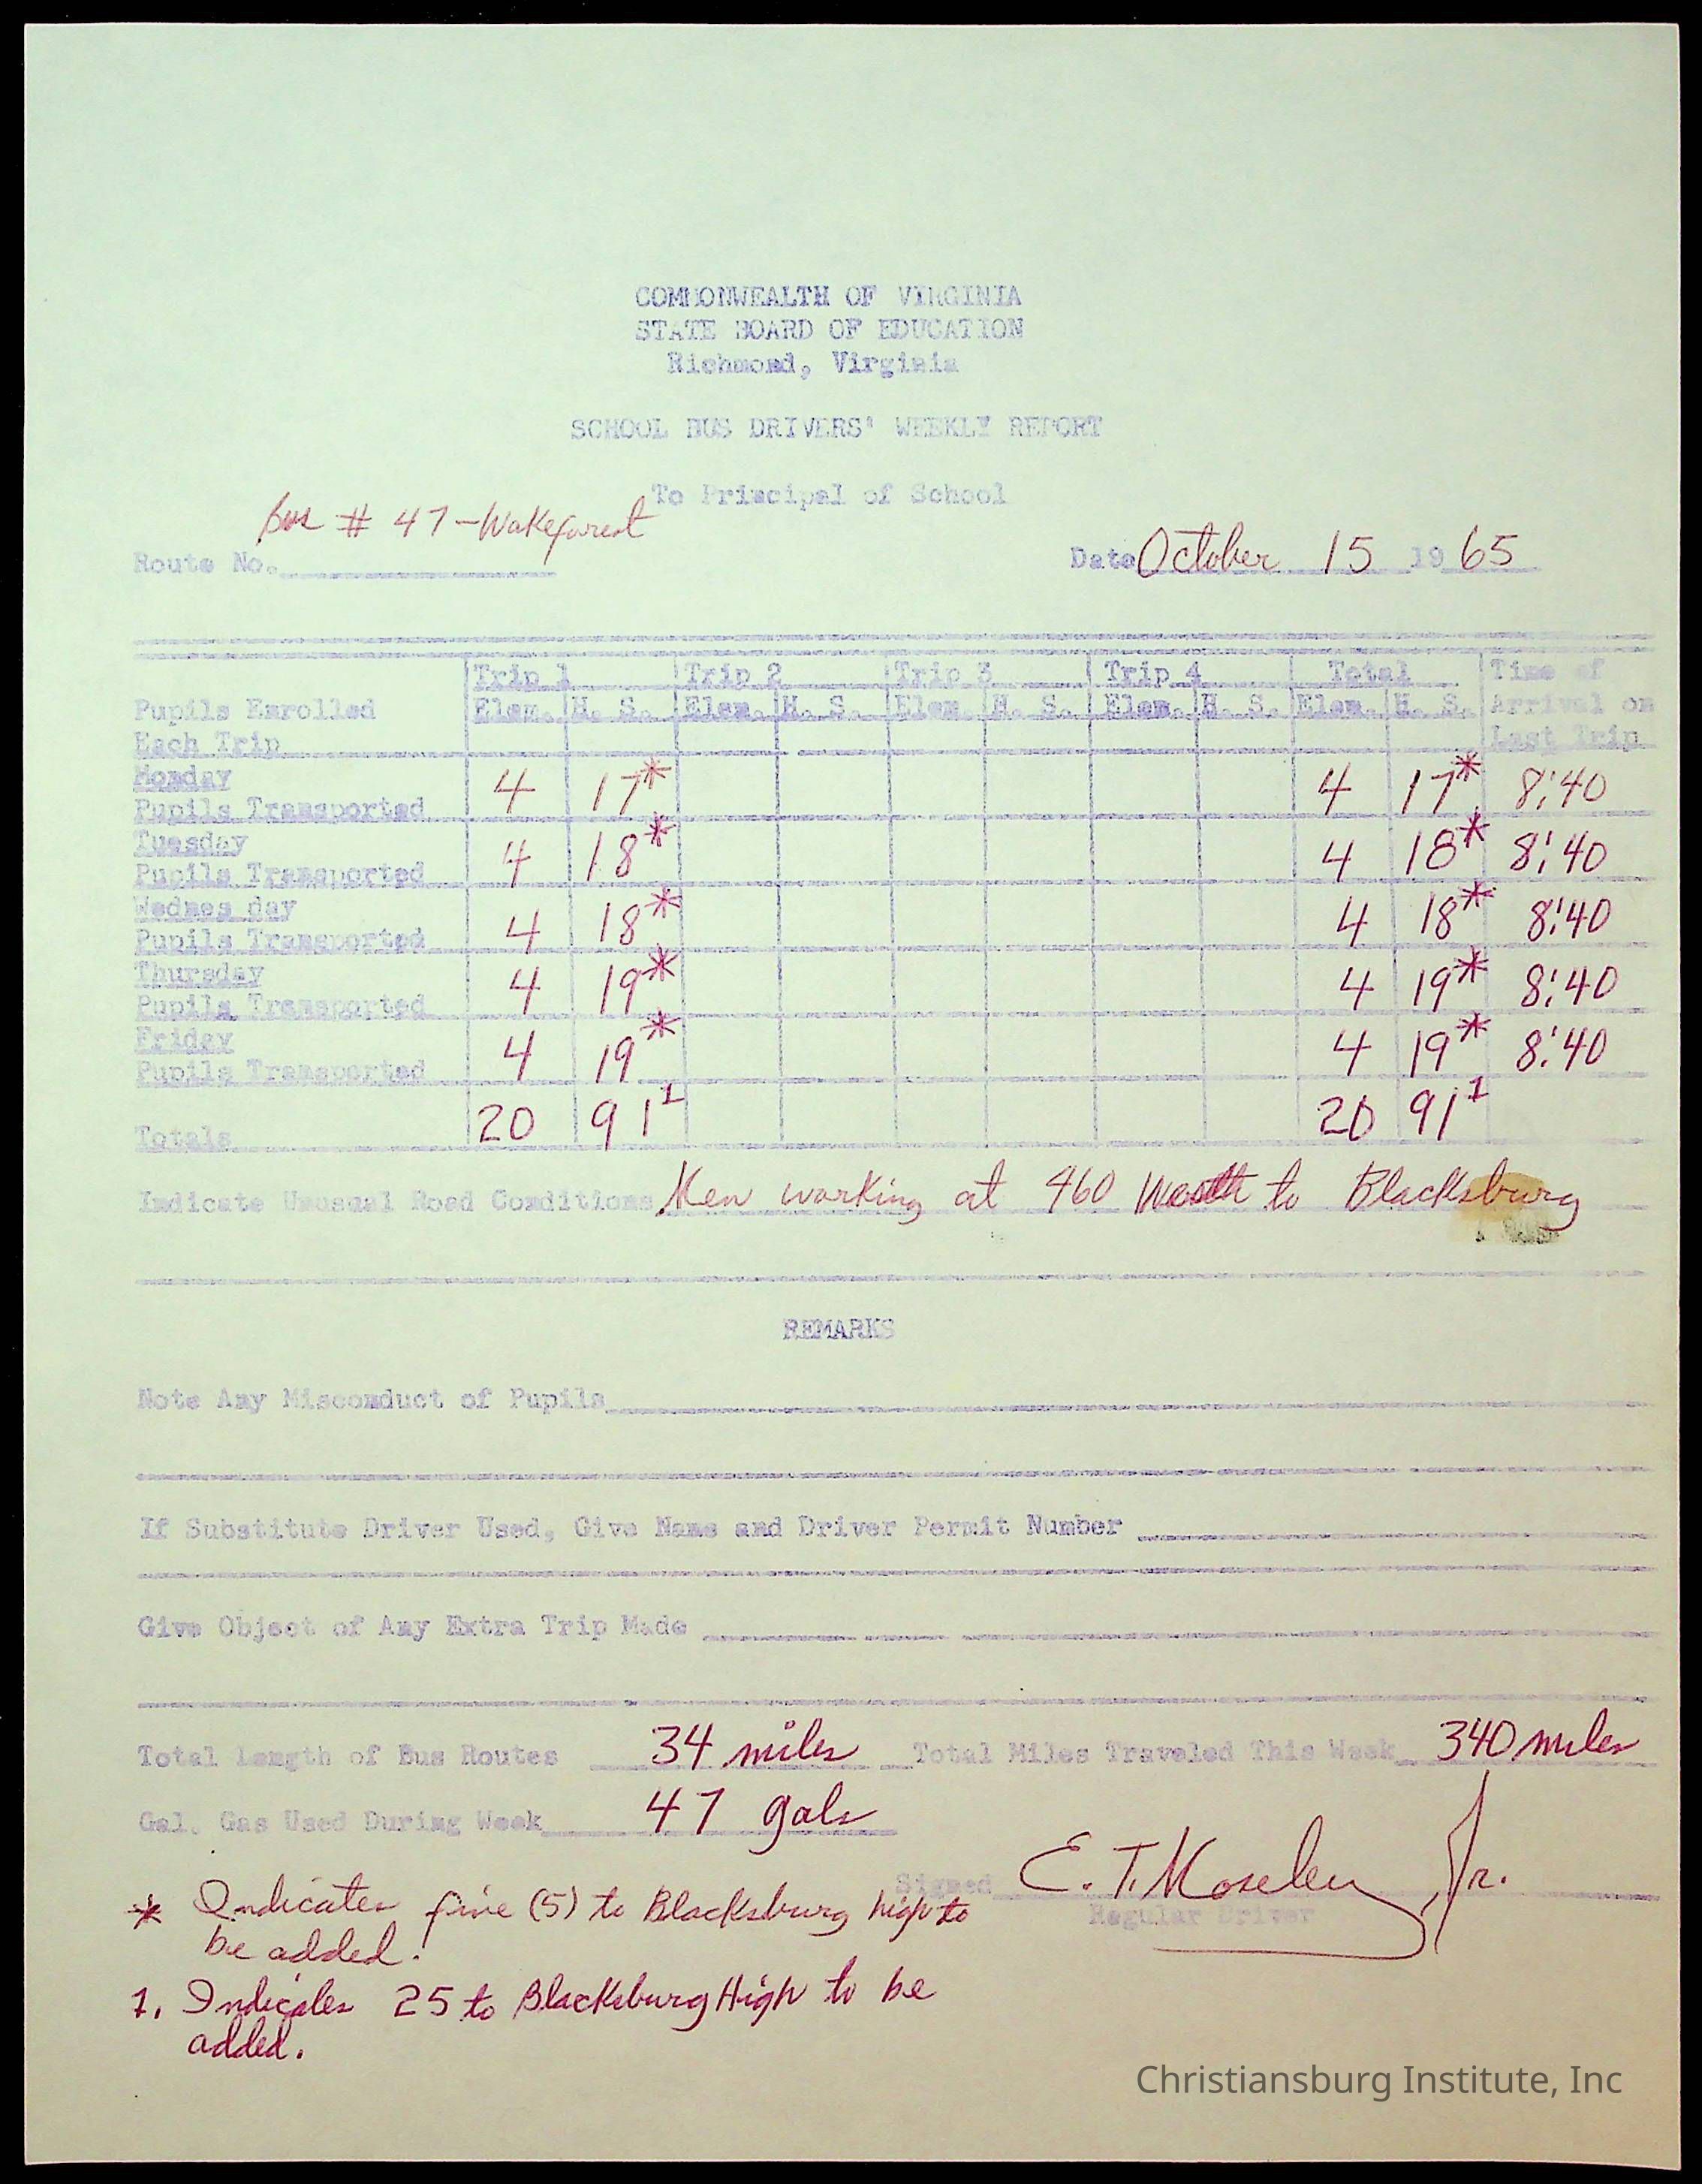 COMMONWEALTH OF VIRGINIA
STATE BOARD OF EDUCATION
Richmond, Virginia
SCHOOL BUS DRIVERS' WEEKLY REPORT
To Principal of School
Bus # 47-Wakeforest
Route No. Date October 15 1965
Trip 1 Trip 2 Trip 3 Trip 4 Total Time of
Pupils Enrolled Elem. H. S. Elem. H. S. Elem. H. S. Elem. H. S. Elem. H. S. Arrival on
Each Trip Last Trip
Monday
Pupils Transported 4 17* 4 17* 8:40
Tuesday
Pupils Transported 4 18* 4 18* 8:40
Wednes day
Pupils Transported 4 18* 4 18* 8:40
Thursday
Pupils Transported 4 19* 4 19* 8:40
Friday
Pupils Transported 4 19* 4 19* 8:40
Totals 20 91¹ 20 91¹
Indicate Unusual Road Conditions Men working at 460 to Blacksburg
REMARKS
Note Any Misconduct of Pupils
If Substitute Driver Used, Give Name and Driver Permit Number
Give Object of Any Extra Trip Made
Total Length of Bus Routes 34 miles Total Miles Traveled This Week 340 miles
Gal. Gas Used During Week 47 gals
Signed E. T. Moseley Jr.
Regular Driver
* Indicates five (5) to Blacksburg high to
be added.
1. Indicates 25 to Blacksburg High to be
added.
Christiansburg Institute, Inc